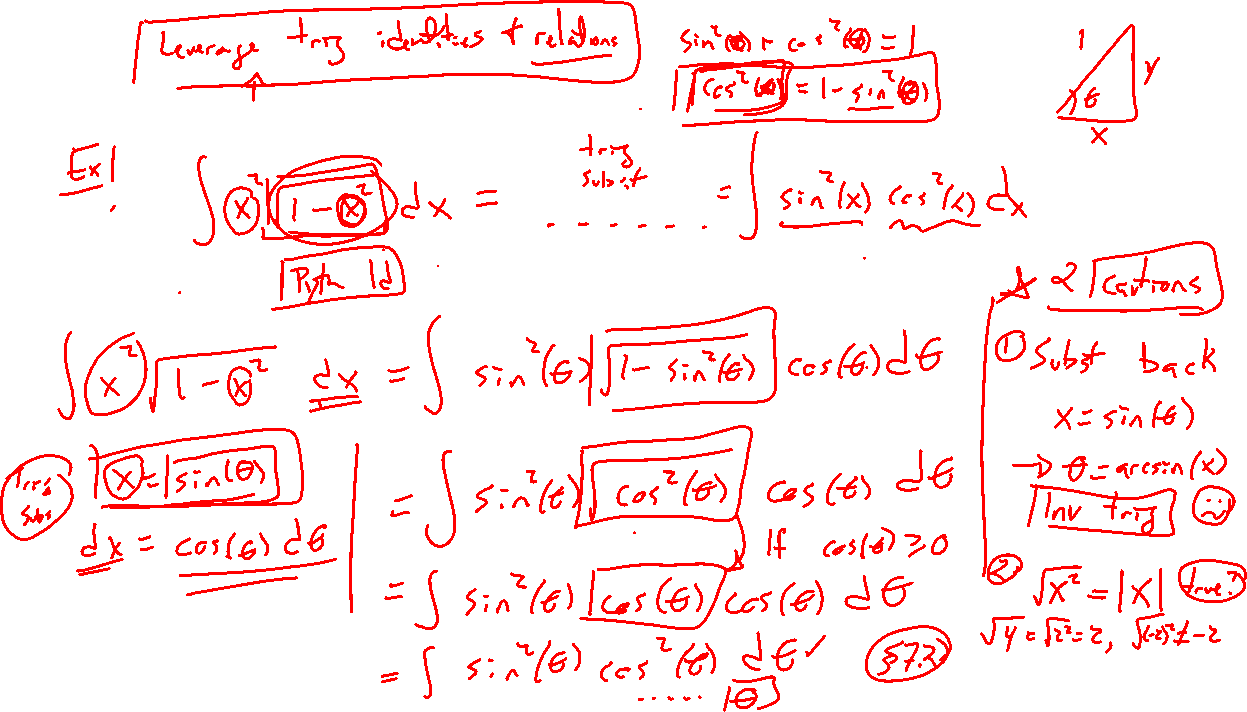 Leverage trig identities & relations
sin²(θ) + cos²(θ) = 1
cos²(θ) = 1 - sin²(θ)
1 y θ x
Ex!
∫ x² √(1 - x²) dx = trig subst ....... = ∫ sin²(x) cos²(x) dx
Pyth Id
∫ x² √(1 - x²) dx = ∫ sin²(θ) √(1 - sin²(θ)) cos(θ) dθ
Trig Subs
x = sin(θ)
dx = cos(θ) dθ
= ∫ sin²(θ) √(cos²(θ)) cos(θ) dθ
If cos(θ) ≥ 0
= ∫ sin²(θ) cos(θ) cos(θ) dθ
= ∫ sin²(θ) cos²(θ) dθ ✓
θ
§7.2
2 cautions
① Subst back
x = sin(θ)
→ θ = arcsin(x)
Inv trig
② √x² = |x| true?
√4 = √2² = 2, √(-2)² ≠ -2